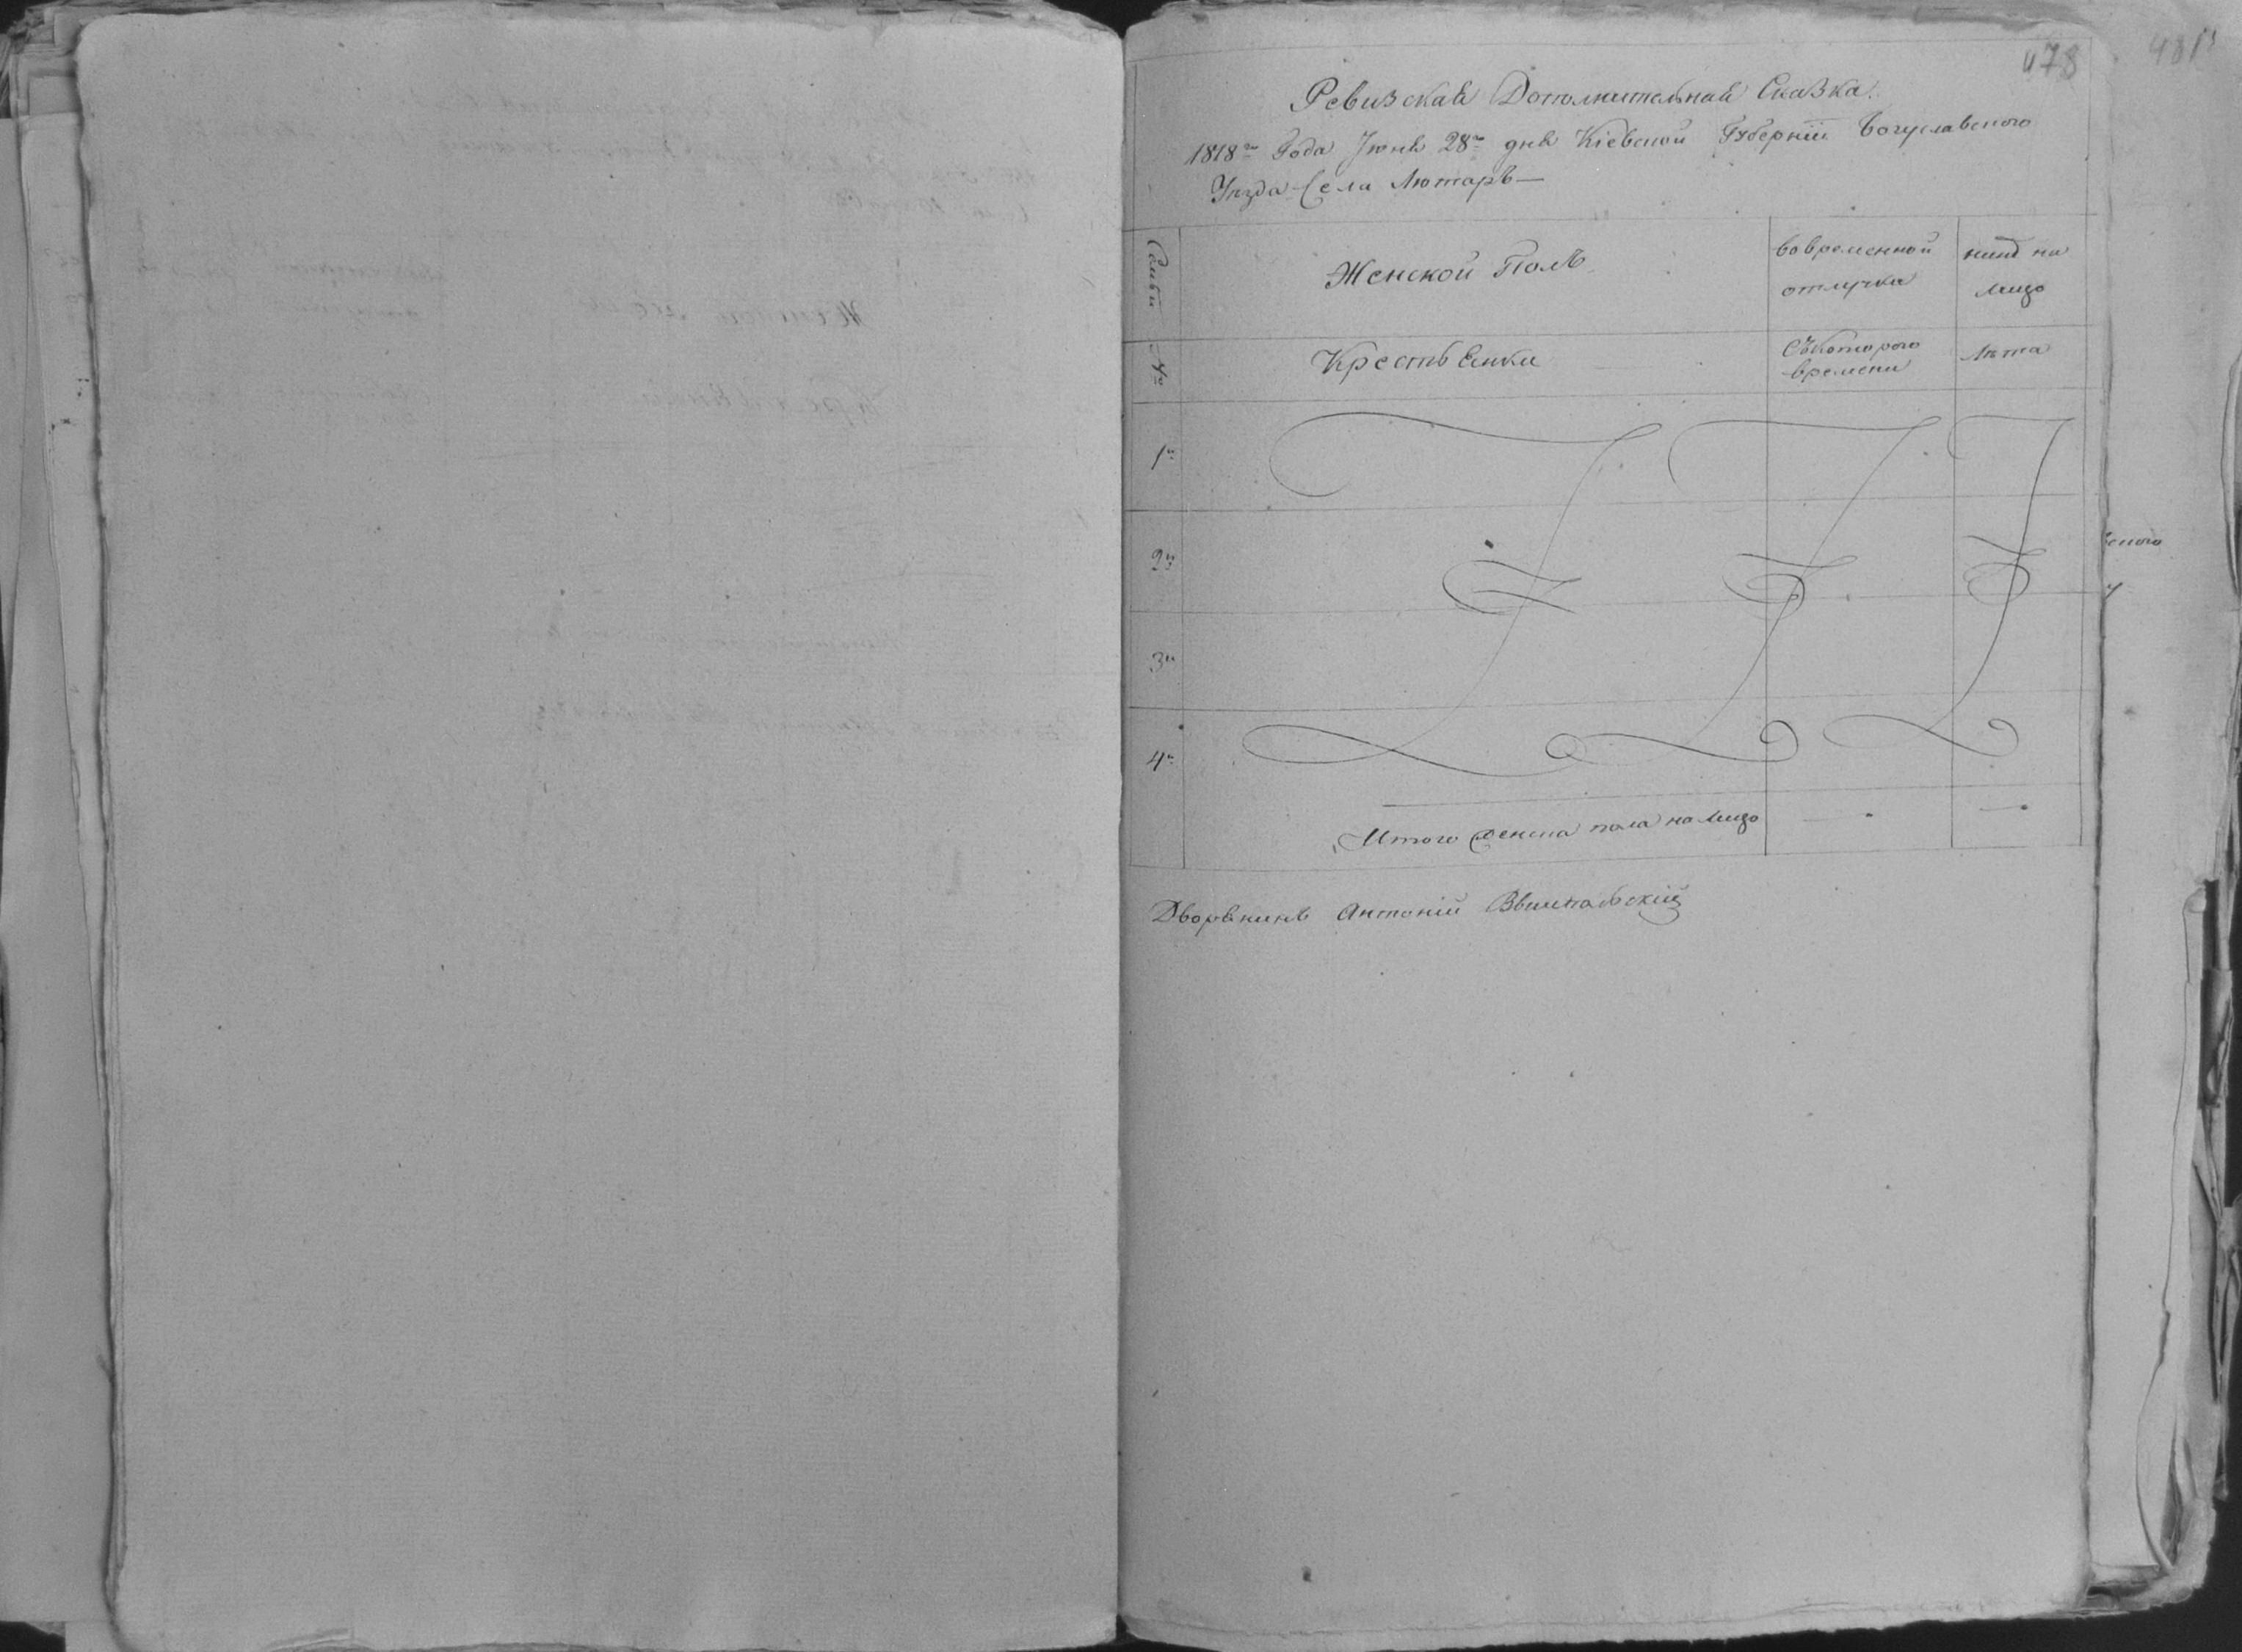 478
Ревизская Дополнительная Сказка.
1818го Года Июня 28го дня Кіевской Губерніи Богуславского
Уезда Села Лютаръ
Семьи
Женской Полъ
вовременной
отлучки
нине на
лицо
№
Крестьянки
Съкоторого
времени
Лета
1й
2й
3й
4й
Итого женска пола на лицо
Дворянинъ Антоній